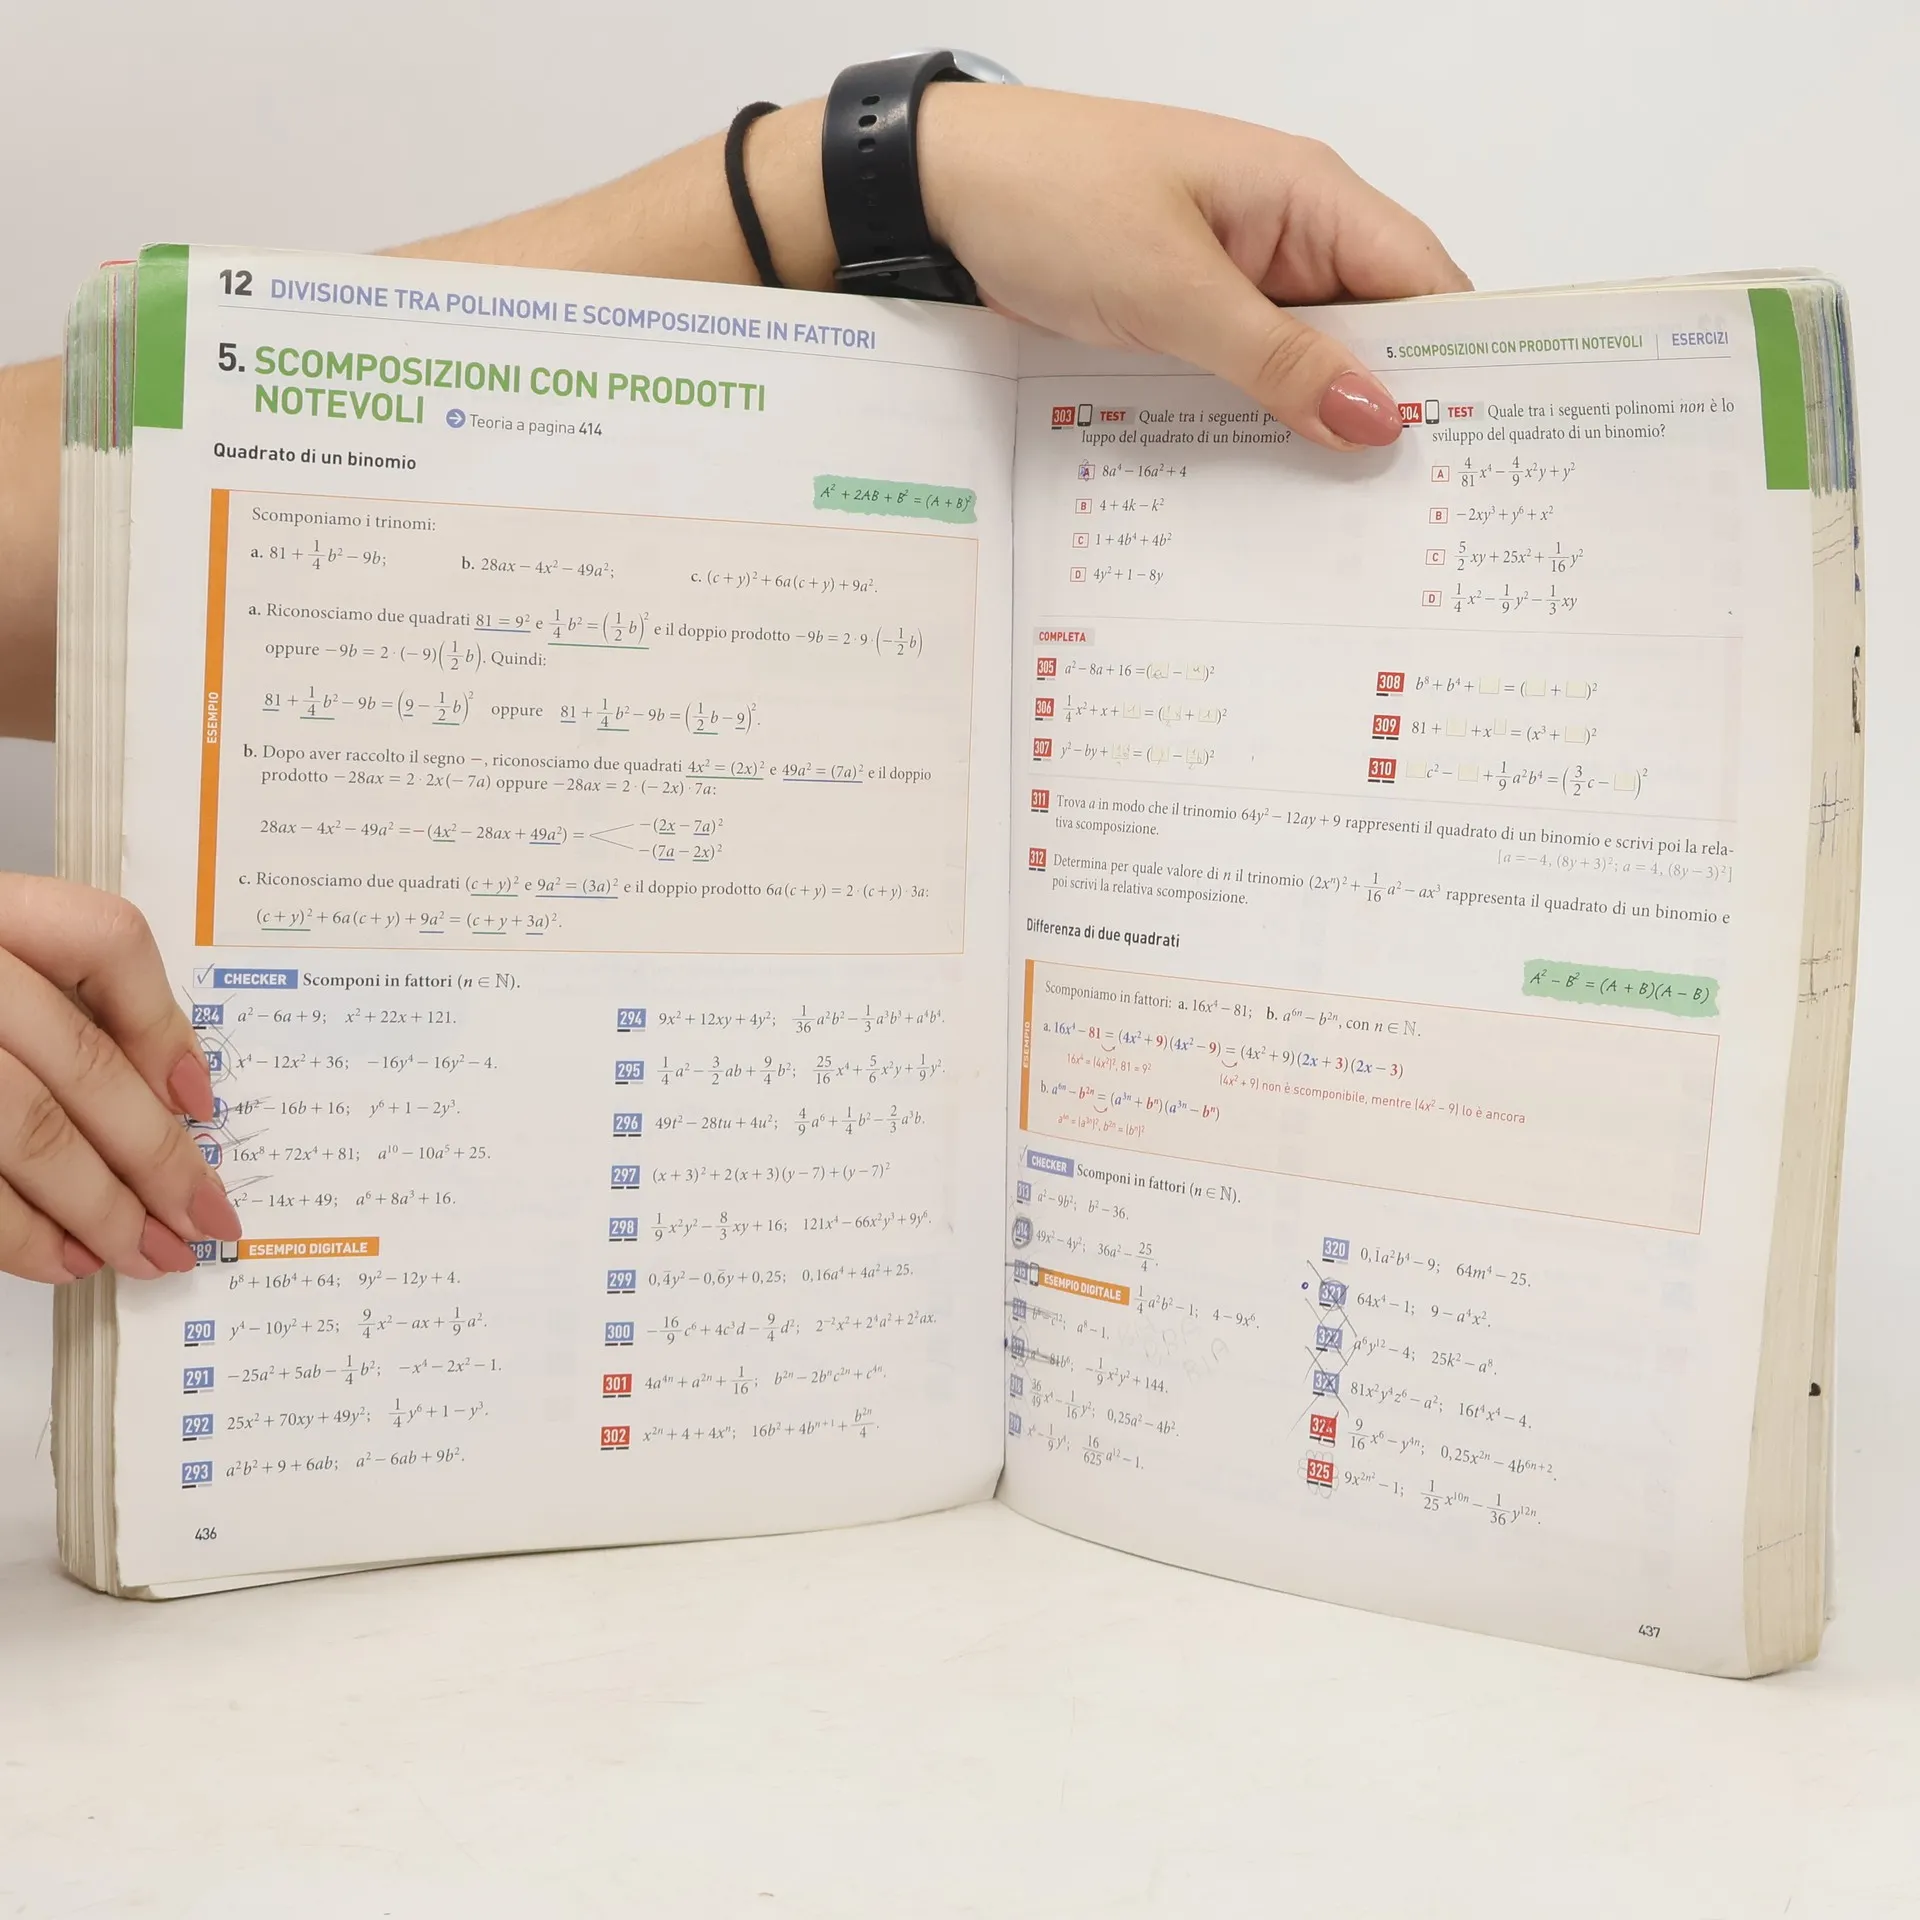 12 DIVISIONE TRA POLINOMI E SCOMPOSIZIONE IN FATTORI
5. SCOMPOSIZIONI CON PRODOTTI
NOTEVOLI Teoria a pagina 414
Quadrato di un binomio
A² + 2AB + B² = (A + B)²
ESEMPIO
Scomponiamo i trinomi:
a. 81 + 1/4 b² − 9b; b. 28ax − 4x² − 49a²; c. (c + y)² + 6a(c + y) + 9a².
a. Riconosciamo due quadrati 81 = 9² e 1/4 b² = (1/2 b)² e il doppio prodotto −9b = 2 · 9 · (−1/2 b)
oppure −9b = 2 · (−9)(1/2 b). Quindi:
81 + 1/4 b² − 9b = (9 − 1/2 b)² oppure 81 + 1/4 b² − 9b = (1/2 b − 9)².
b. Dopo aver raccolto il segno −, riconosciamo due quadrati 4x² = (2x)² e 49a² = (7a)² e il doppio
prodotto −28ax = 2 · 2x(−7a) oppure −28ax = 2 · (−2x) · 7a:
28ax − 4x² − 49a² = −(4x² − 28ax + 49a²) =
−(2x − 7a)²
−(7a − 2x)²
c. Riconosciamo due quadrati (c + y)² e 9a² = (3a)² e il doppio prodotto 6a(c + y) = 2 · (c + y) · 3a:
(c + y)² + 6a(c + y) + 9a² = (c + y + 3a)².
CHECKER Scomponi in fattori (n ∈ ℕ).
284 a² − 6a + 9; x² + 22x + 121.
x⁴ − 12x² + 36; −16y⁴ − 16y² − 4.
4b² − 16b + 16; y⁶ + 1 − 2y³.
16x⁸ + 72x⁴ + 81; a¹⁰ − 10a⁵ + 25.
x² − 14x + 49; a⁶ + 8a³ + 16.
289 ESEMPIO DIGITALE
b⁸ + 16b⁴ + 64; 9y² − 12y + 4.
290 y⁴ − 10y² + 25; 9/4 x² − ax + 1/9 a².
291 −25a² + 5ab − 1/4 b²; −x⁴ − 2x² − 1.
292 25x² + 70xy + 49y²; 1/4 y⁶ + 1 − y³.
293 a²b² + 9 + 6ab; a² − 6ab + 9b².
294 9x² + 12xy + 4y²; 1/36 a²b² − 1/3 a³b³ + a⁴b⁴.
295 1/4 a² − 3/2 ab + 9/4 b²; 25/16 x⁴ + 5/6 x²y + 1/9 y².
296 49t² − 28tu + 4u²; 4/9 a⁶ + 1/4 b² − 2/3 a³b.
297 (x + 3)² + 2(x + 3)(y − 7) + (y − 7)²
298 1/9 x²y² − 8/3 xy + 16; 121x⁴ − 66x²y³ + 9y⁶.
299 0,4̄y² − 0,6̄y + 0,25; 0,16a⁴ + 4a² + 25.
300 −16/9 c⁶ + 4c³d − 9/4 d²; 2⁻²x² + 2⁴a² + 2²ax.
301 4a⁴ⁿ + a²ⁿ + 1/16; b²ⁿ − 2bⁿc²ⁿ + c⁴ⁿ.
302 x²ⁿ + 4 + 4xⁿ; 16b² + 4bⁿ⁺¹ + b²ⁿ/4.
436
5. SCOMPOSIZIONI CON PRODOTTI NOTEVOLI ESERCIZI
303 TEST Quale tra i seguenti
luppo del quadrato di un binomio?
A 8a⁴ − 16a² + 4
B 4 + 4k − k²
C 1 + 4b⁴ + 4b²
D 4y² + 1 − 8y
304 TEST Quale tra i seguenti polinomi non è lo
sviluppo del quadrato di un binomio?
A 4/81 x⁴ − 4/9 x²y + y²
B −2xy³ + y⁶ + x²
C 5/2 xy + 25x² + 1/16 y²
D 1/4 x² − 1/9 y² − 1/3 xy
COMPLETA
305 a² − 8a + 16 = ( − )²
306 1/4 x² + x + = ( + )²
307 y² − by + = ( − )²
308 b⁸ + b⁴ + = ( + )²
309 81 + + x = (x³ + )²
310 c² − + 1/9 a²b⁴ = (3/2 c − )²
311 Trova a in modo che il trinomio 64y² − 12ay + 9 rappresenti il quadrato di un binomio e scrivi poi la rela-
tiva scomposizione.
[a = −4, (8y + 3)²; a = 4, (8y − 3)²]
312 Determina per quale valore di n il trinomio (2xⁿ)² + 1/16 a² − ax³ rappresenta il quadrato di un binomio e
poi scrivi la relativa scomposizione.
Differenza di due quadrati
A² − B² = (A + B)(A − B)
ESEMPIO
Scomponiamo in fattori: a. 16x⁴ − 81; b. a⁶ⁿ − b²ⁿ, con n ∈ ℕ.
a. 16x⁴ − 81 = (4x² + 9)(4x² − 9) = (4x² + 9)(2x + 3)(2x − 3)
16x⁴ = (4x²)²; 81 = 9²
(4x² + 9) non è scomponibile, mentre (4x² − 9) lo è ancora
b. a⁶ⁿ − b²ⁿ = (a³ⁿ + bⁿ)(a³ⁿ − bⁿ)
a⁶ⁿ = (a³ⁿ)²; b²ⁿ = (bⁿ)²
CHECKER Scomponi in fattori (n ∈ ℕ).
313 a² − 9b²; b² − 36.
314 49x² − 4y²; 36a² − 25/4.
315 ESEMPIO DIGITALE 1/4 a²b² − 1; 4 − 9x⁶.
a⁸ − 1.
−1/9 x²y² + 144.
318 36/49 x⁴ − 1/16 y²; 0,25a² − 4b².
319 x⁶ − 1/9 y⁴; 16/625 a¹² − 1.
320 0,1̄a²b⁴ − 9; 64m⁴ − 25.
321 64x⁴ − 1; 9 − a⁴x².
322 a⁶y¹² − 4; 25k² − a⁸.
323 81x²y⁴z⁶ − a²; 16t⁴x⁴ − 4.
324 9/16 x⁶ − y⁴ⁿ; 0,25x²ⁿ − 4b⁶ⁿ⁺².
325 9x²ⁿ² − 1; 1/25 x¹⁰ⁿ − 1/36 y¹²ⁿ.
437